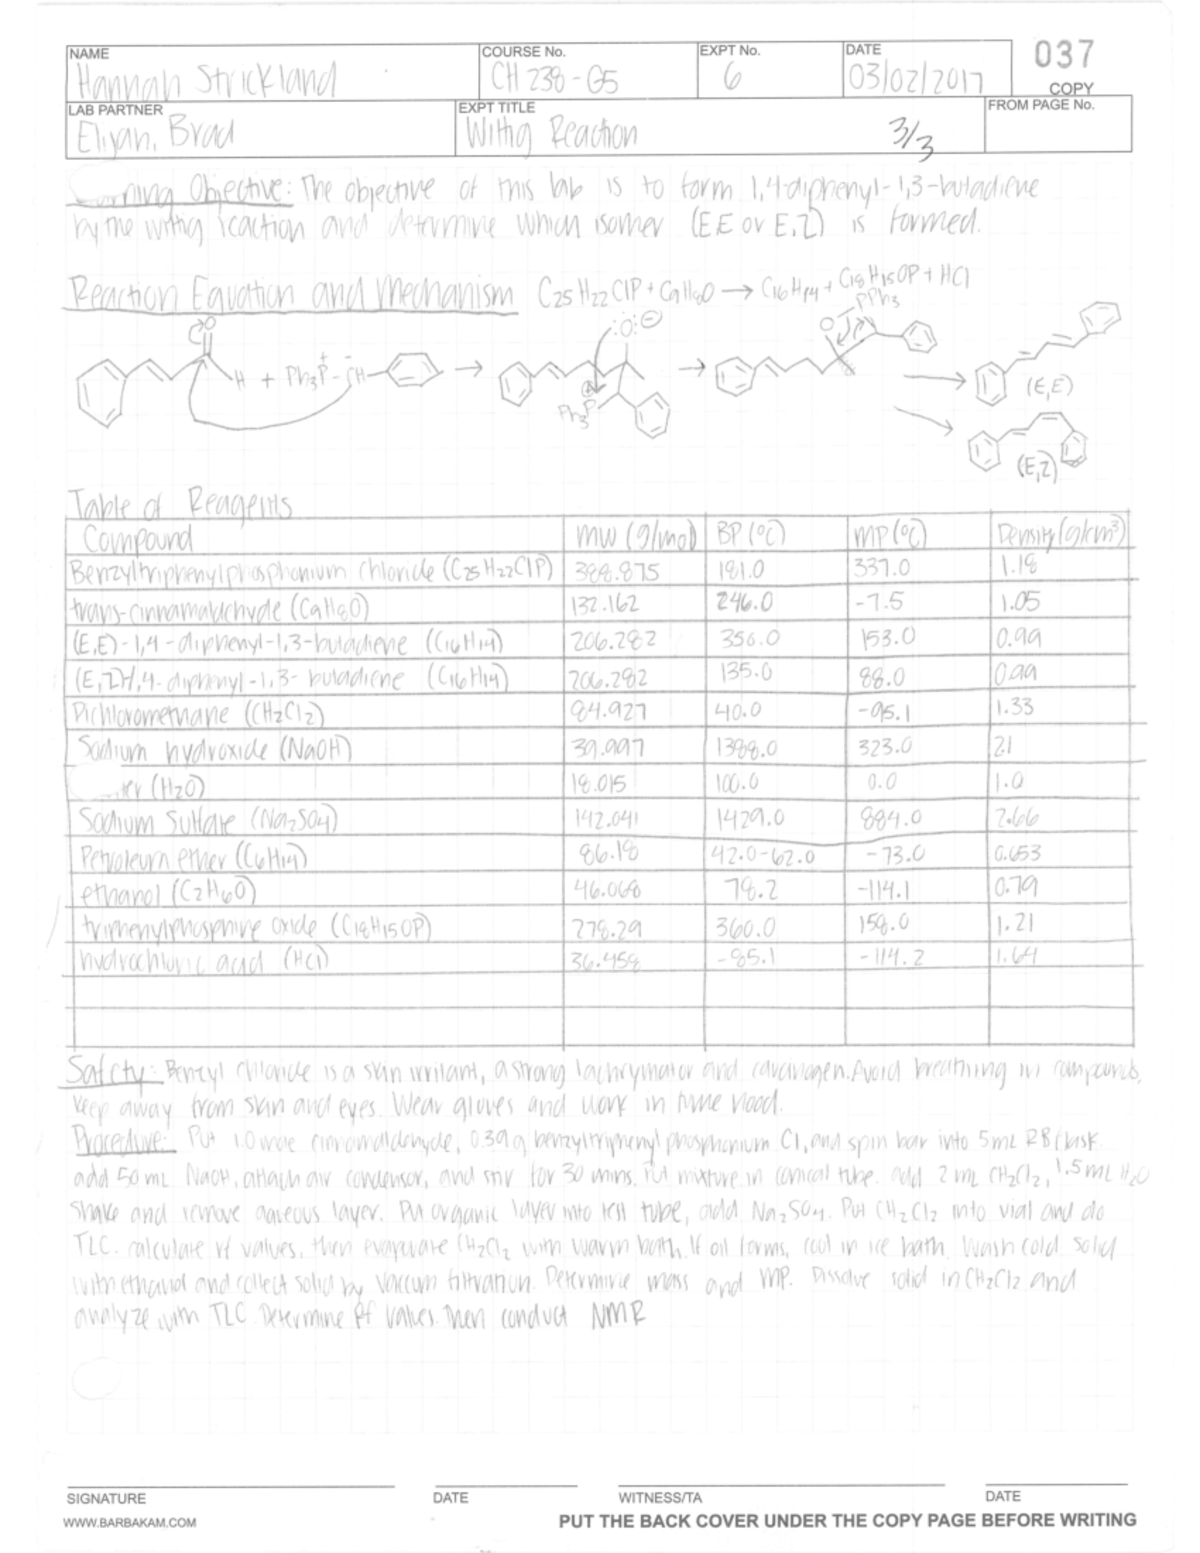 NAME COURSE No. EXPT No. DATE 037
Hannah Strickland CH 238-G5 6 03/02/2017 COPY
LAB PARTNER EXPT TITLE FROM PAGE No.
Elijah, Brad Wittig Reaction 3/3
Objective: The objective of this lab is to form 1,4-diphenyl-1,3-butadiene
by the wittig reaction and determine which isomer (E,E or E,Z) is formed.
Reaction Equation and Mechanism C25H22ClP + C9H8O → C16H14 + C18H15OP + HCl
PPh3
O :O: ⊖ O
H + Ph3P+ - CH - → → (E,E)
Ph3P (E,Z)
Table of Reagents
Compound MW (g/mol) BP (°C) MP (°C) Density (g/cm3)
Benzyltriphenylphosphonium chloride (C25H22ClP) 388.875 181.0 337.0 1.18
trans-cinnamaldehyde (C9H8O) 132.162 246.0 -7.5 1.05
(E,E)-1,4-diphenyl-1,3-butadiene (C16H14) 206.282 350.0 153.0 0.99
(E,Z)-1,4-diphenyl-1,3-butadiene (C16H14) 206.282 135.0 88.0 0.99
Dichloromethane (CH2Cl2) 84.927 40.0 -95.1 1.33
Sodium hydroxide (NaOH) 39.997 1388.0 323.0 2.1
(H2O) 18.015 100.0 0.0 1.0
Sodium Sulfate (Na2SO4) 142.041 1429.0 884.0 2.66
Petroleum ether (C6H14) 86.18 42.0-62.0 -73.0 0.653
ethanol (C2H6O) 46.068 78.2 -114.1 0.79
triphenylphosphine oxide (C18H15OP) 278.29 360.0 158.0 1.21
hydrochloric acid (HCl) 36.458 -85.1 -114.2 1.64
Safety: Benzyl chloride is a skin irritant, a strong lachrymator and carcinogen. Avoid breathing in compounds,
keep away from skin and eyes. Wear gloves and work in fume hood.
Procedure: Put 1.0 mole cinnamaldehyde, 0.39 g benzyltriphenyl phosphonium Cl, and spin bar into 5 mL RB flask.
add 50 mL NaOH, attach air condensor, and stir for 30 mins. Put mixture in conical tube. add 2 mL CH2Cl2, 1.5 mL H2O
shake and remove aqueous layer. Put organic layer into test tube, add Na2SO4. Put CH2Cl2 into vial and do
TLC. calculate rf values, then evaporate CH2Cl2 with warm bath. If oil forms, cool in ice bath. Wash cold solid
with ethanol and collect solid by vaccum filtration. Determine mass and MP. Dissolve solid in CH2Cl2 and
analyze with TLC. Determine Rf values. Then conduct NMR
SIGNATURE DATE WITNESS/TA DATE
WWW.BARBAKAM.COM PUT THE BACK COVER UNDER THE COPY PAGE BEFORE WRITING